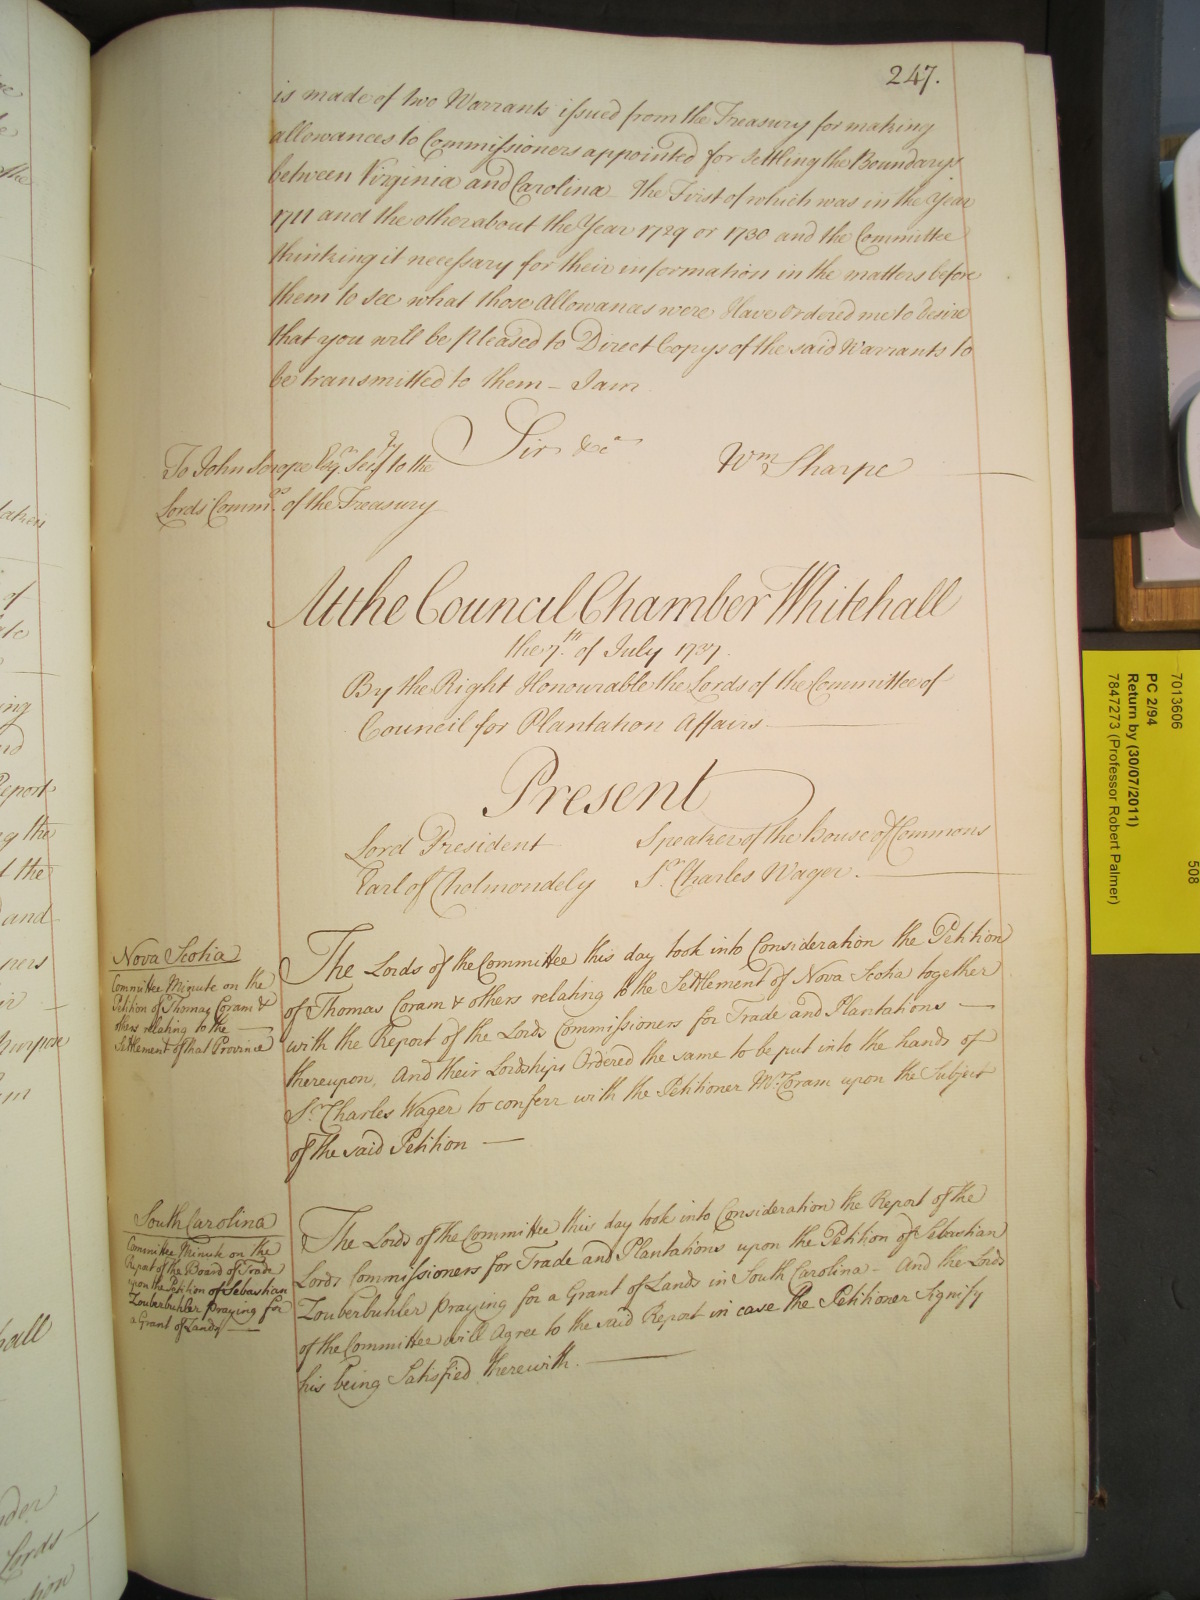 247.
is made of two Warrants issued from the Treasury for making
allowances to Commissioners appointed for settling the Boundarys
between Virginia and Carolina - the First of which was in the Year
1711 and the other about the Year 1729 or 1730 and the Committee
thinking it necessary for their information in the matters before
them to see what those Allowances were Have Ordered me to desire
that you will be pleased to Direct Copys of the said Warrants to
be transmitted to them - I am
Sir &ca
To John Scrope Esqr. Secry to the
Lords Commrs. of the Treasury
Wm Sharpe
At the Council Chamber Whitehall
the 7th. of July 1737.
By the Right Honourable the Lords of the Committee of
Council for Plantation Affairs
Present
Lord President
Speaker of the House of Commons
Earl of Cholmondely
Sr. Charles Wager.
Nova Scotia
Committee Minute on the
Petition of Thomas Coram &
others relating to the
Settlement of that Province
The Lords of the Committee this day took into Consideration the Petition
of Thomas Coram & others relating to the Settlement of Nova Scotia together
with the Report of the Lords Commissioners for Trade and Plantations
thereupon, And their Lordships Ordered the same to be put into the hands of
Sr. Charles Wager to conferr with the Petitioner Mr. Coram upon the Subject
of the said Petition
South Carolina
Committee Minute on the
Report of the Board of Trade
upon the Petition of Sebastian
Zouberbuhler praying for
a Grant of Lands
The Lords of the Committee this day took into Consideration the Report of the
Lords Commissioners for Trade and Plantations upon the Petition of Sebastian
Zouberbuhler praying for a Grant of Lands in South Carolina - And the Lords
of the Committee will Agree to the said Report in case the Petitioner Signify
his being Satisfied therewith.
7013606
508
PC 2/94
Return by (30/07/2011)
7847273 (Professor Robert Palmer)